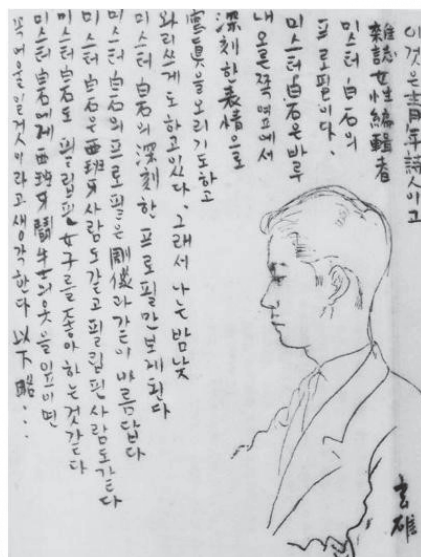 이것은 靑年詩人이고
雜誌女性編輯者
미스터 白石의
프로필이다.
미스터 白石은 바루
내 오른쪽 옆에서
深刻한 表情으로
寫眞을 오리기도 하고
와리쓰게도 하고 있다. 그래서 나는 밤낮
미스터 白石의 深刻한 프로필만 보게 된다
미스터 白石의 프로필은 과 같이 아름답다
미스터 白石은 西班牙사람도 같고 필립핀사람도 같다
미스터 白石도 필립핀 女子를 좋아하는 것 같다
미스터 白石에게 西班牙 鬪牛士의 옷을 입히면
꼭 어울릴 것이라고 생각한다 以下略...
玄雄